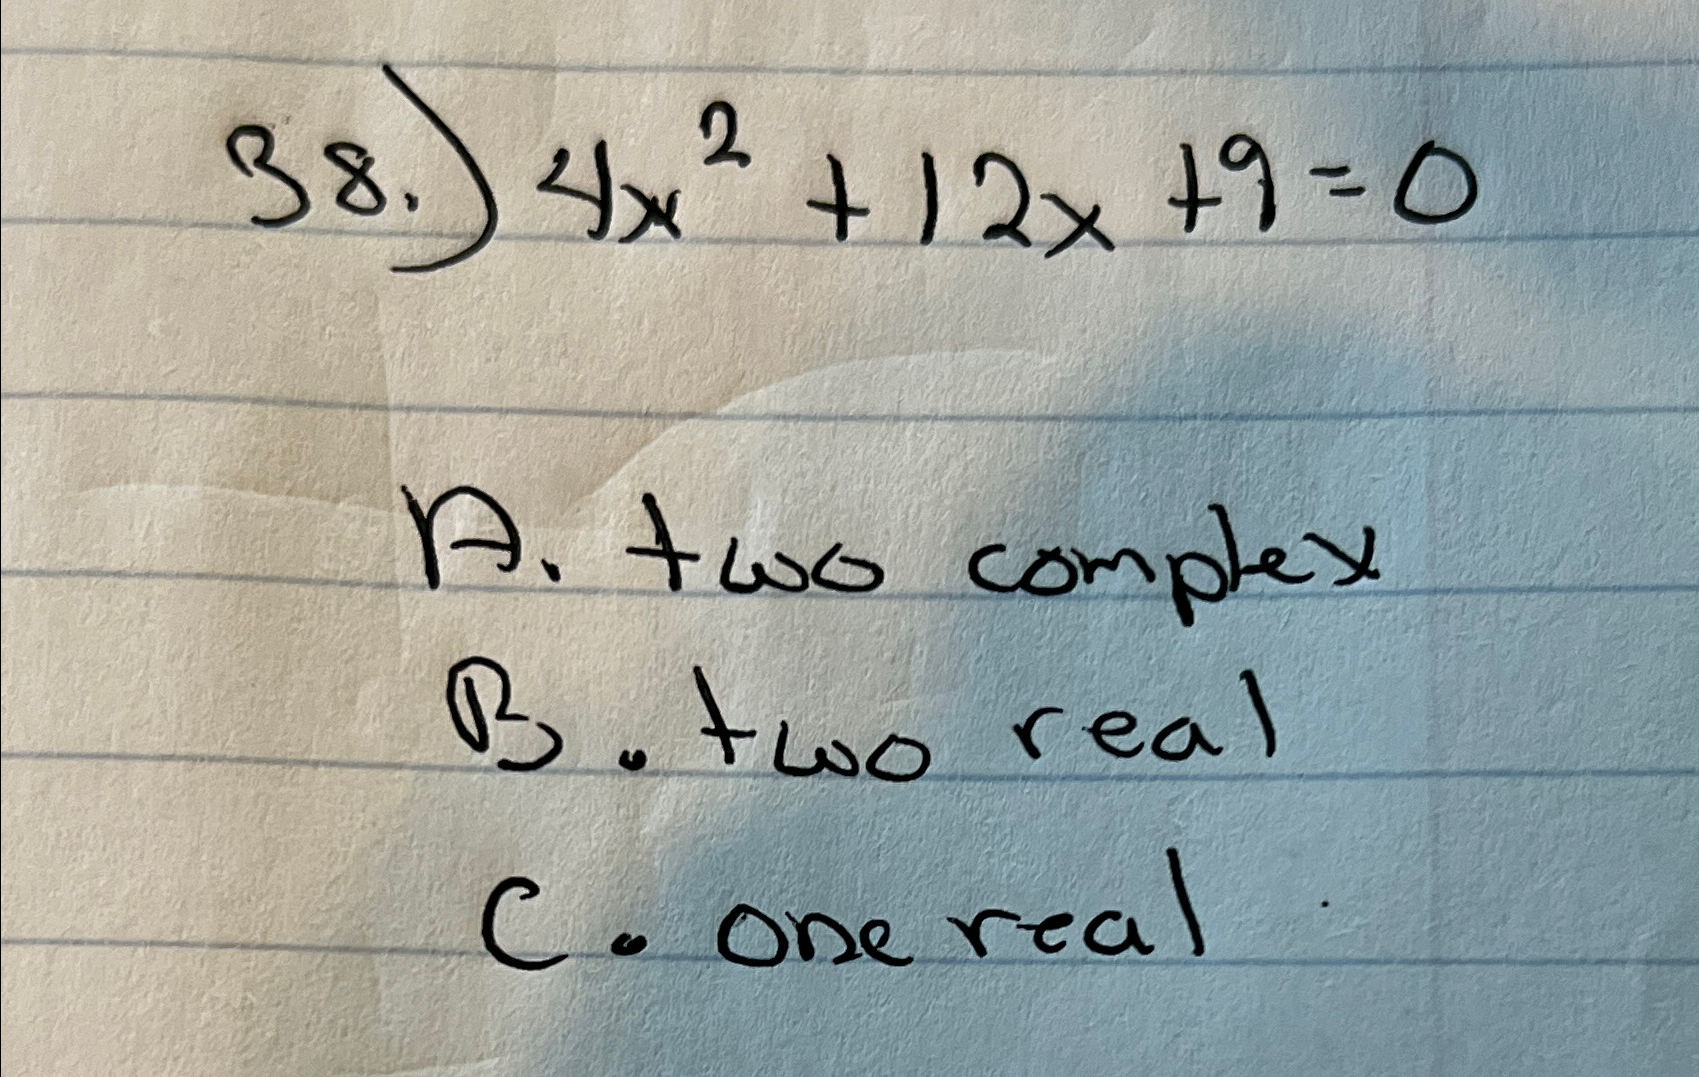 38.) 4x² + 12x + 9 = 0
A. two complex
B. two real
C. one real